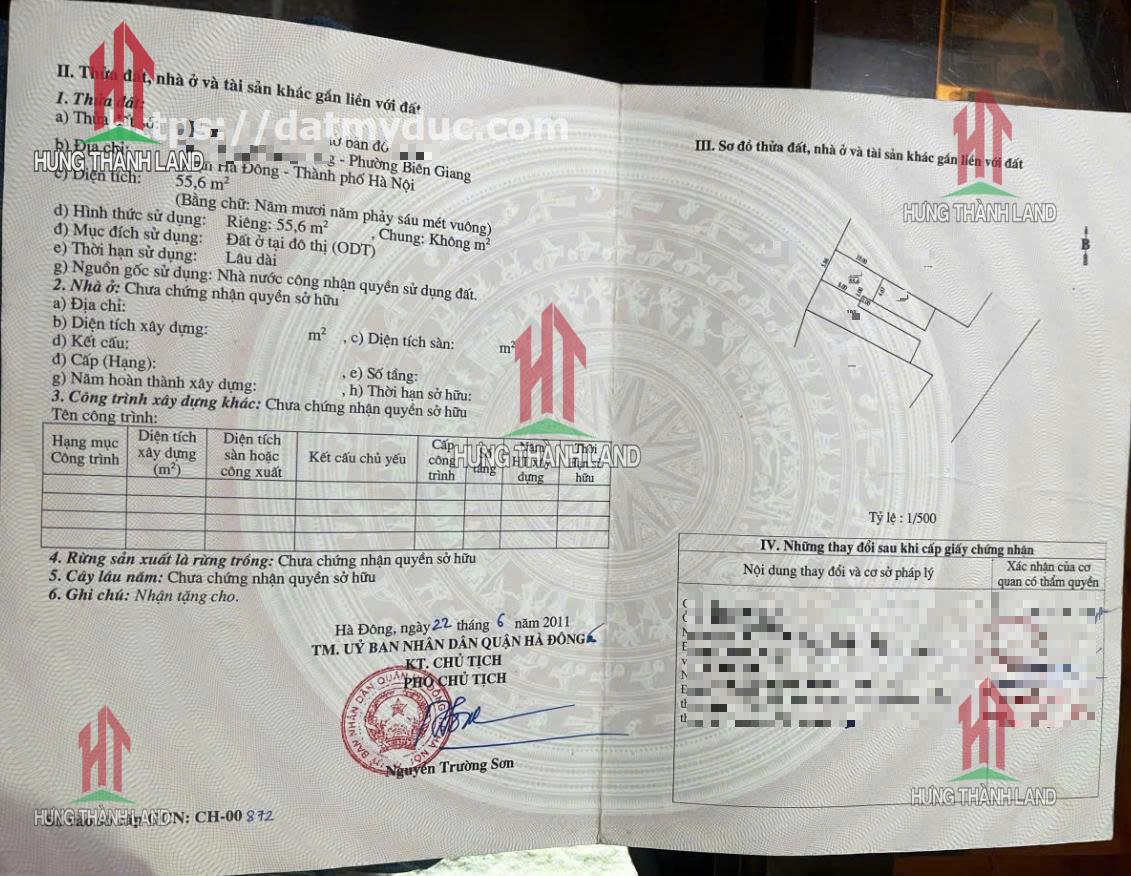 II. Thửa đất, nhà ở và tài sản khác gắn liền với đất
1. Thửa đất:
a) Thửa đất số:
https://datmyduc.com
bản đồ
b) Địa chỉ:
- Phường Biên Giang
Hà Đông - Thành phố Hà Nội
c) Diện tích: 55,6 m²
(Bằng chữ: Năm mươi năm phảy sáu mét vuông)
d) Hình thức sử dụng: Riêng: 55,6 m² , Chung: Không m²
đ) Mục đích sử dụng: Đất ở tại đô thị (ODT)
e) Thời hạn sử dụng: Lâu dài
g) Nguồn gốc sử dụng: Nhà nước công nhận quyền sử dụng đất.
2. Nhà ở: Chưa chứng nhận quyền sở hữu
a) Địa chỉ:
b) Diện tích xây dựng: m² , c) Diện tích sàn: m²
d) Kết cấu:
đ) Cấp (Hạng): , e) Số tầng:
g) Năm hoàn thành xây dựng: , h) Thời hạn sở hữu:
3. Công trình xây dựng khác: Chưa chứng nhận quyền sở hữu
Tên công trình:
Hạng mục Công trình
Diện tích xây dựng (m²)
Diện tích sàn hoặc công xuất
Kết cấu chủ yếu
Cấp công trình
tầng
Năm HT xây dựng
Thời hạn sở hữu
4. Rừng sản xuất là rừng trồng: Chưa chứng nhận quyền sở hữu
5. Cây lâu năm: Chưa chứng nhận quyền sở hữu
6. Ghi chú: Nhận tặng cho.
Hà Đông, ngày 22 tháng 6 năm 2011
TM. UỶ BAN NHÂN DÂN QUẬN HÀ ĐÔNG
KT. CHỦ TỊCH
PHÓ CHỦ TỊCH
Nguyễn Trường Sơn
GCN: CH-00 872
III. Sơ đồ thửa đất, nhà ở và tài sản khác gắn liền với đất
B
55,6
Tỷ lệ : 1/500
IV. Những thay đổi sau khi cấp giấy chứng nhận
Nội dung thay đổi và cơ sở pháp lý
Xác nhận của cơ quan có thẩm quyền
HƯNG THÀNH LAND
HƯNG THÀNH LAND
HƯNG THÀNH LAND
HƯNG THÀNH LAND
HƯNG THÀNH LAND